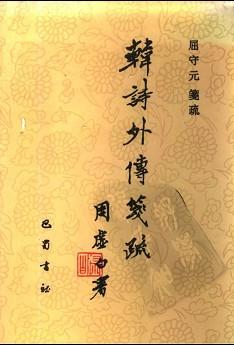 屈守元 箋疏
韓詩外傳箋疏
周虛白署
巴蜀書社